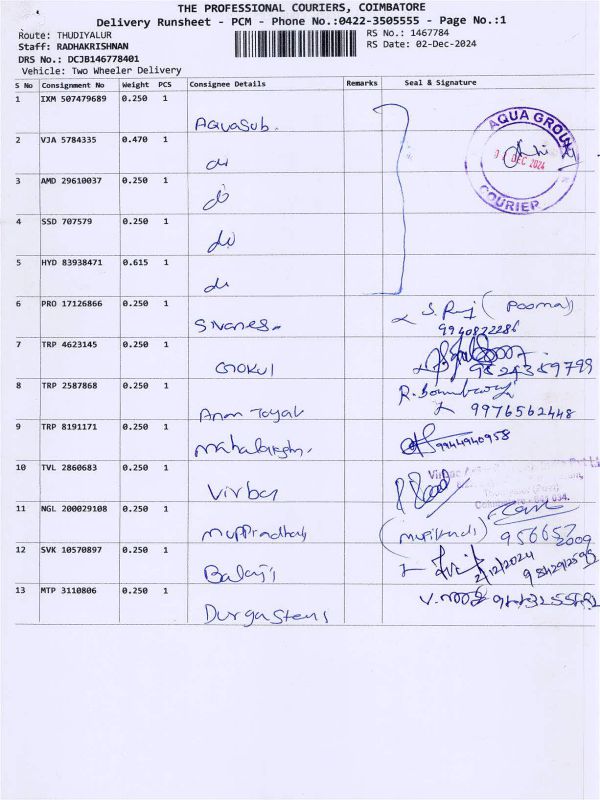 THE PROFESSIONAL COURIERS, COIMBATORE
Delivery Runsheet - PCM - Phone No.:0422-3505555 - Page No.:1
Route: THUDIYALUR RS No.: 1467784
Staff: RADHAKRISHNAN RS Date: 02-Dec-2024
DRS No.: DCJB146778401
Vehicle: Two Wheeler Delivery
S No Consignment No Weight PCS Consignee Details Remarks Seal & Signature
1 IXM 507479689 0.250 1 AquaSub.
AQUA GROUP
DEC 2024
COURIER
2 VJA 5784335 0.470 1 do
3 AMD 29610037 0.250 1 do
4 SSD 707579 0.250 1 do
5 HYD 83938471 0.615 1 do
6 PRO 17126866 0.250 1 S. Raj (Poomal)
9940822286
7 TRP 4623145 0.250 1 Gokul
8 TRP 2587868 0.250 1 9976562448
9 TRP 8191171 0.250 1 9444940958
10 TVL 2860683 0.250 1 Virbac
11 NGL 200029108 0.250 1
12 SVK 10570897 0.250 1 Balaji 2/12/2024
13 MTP 3110806 0.250 1